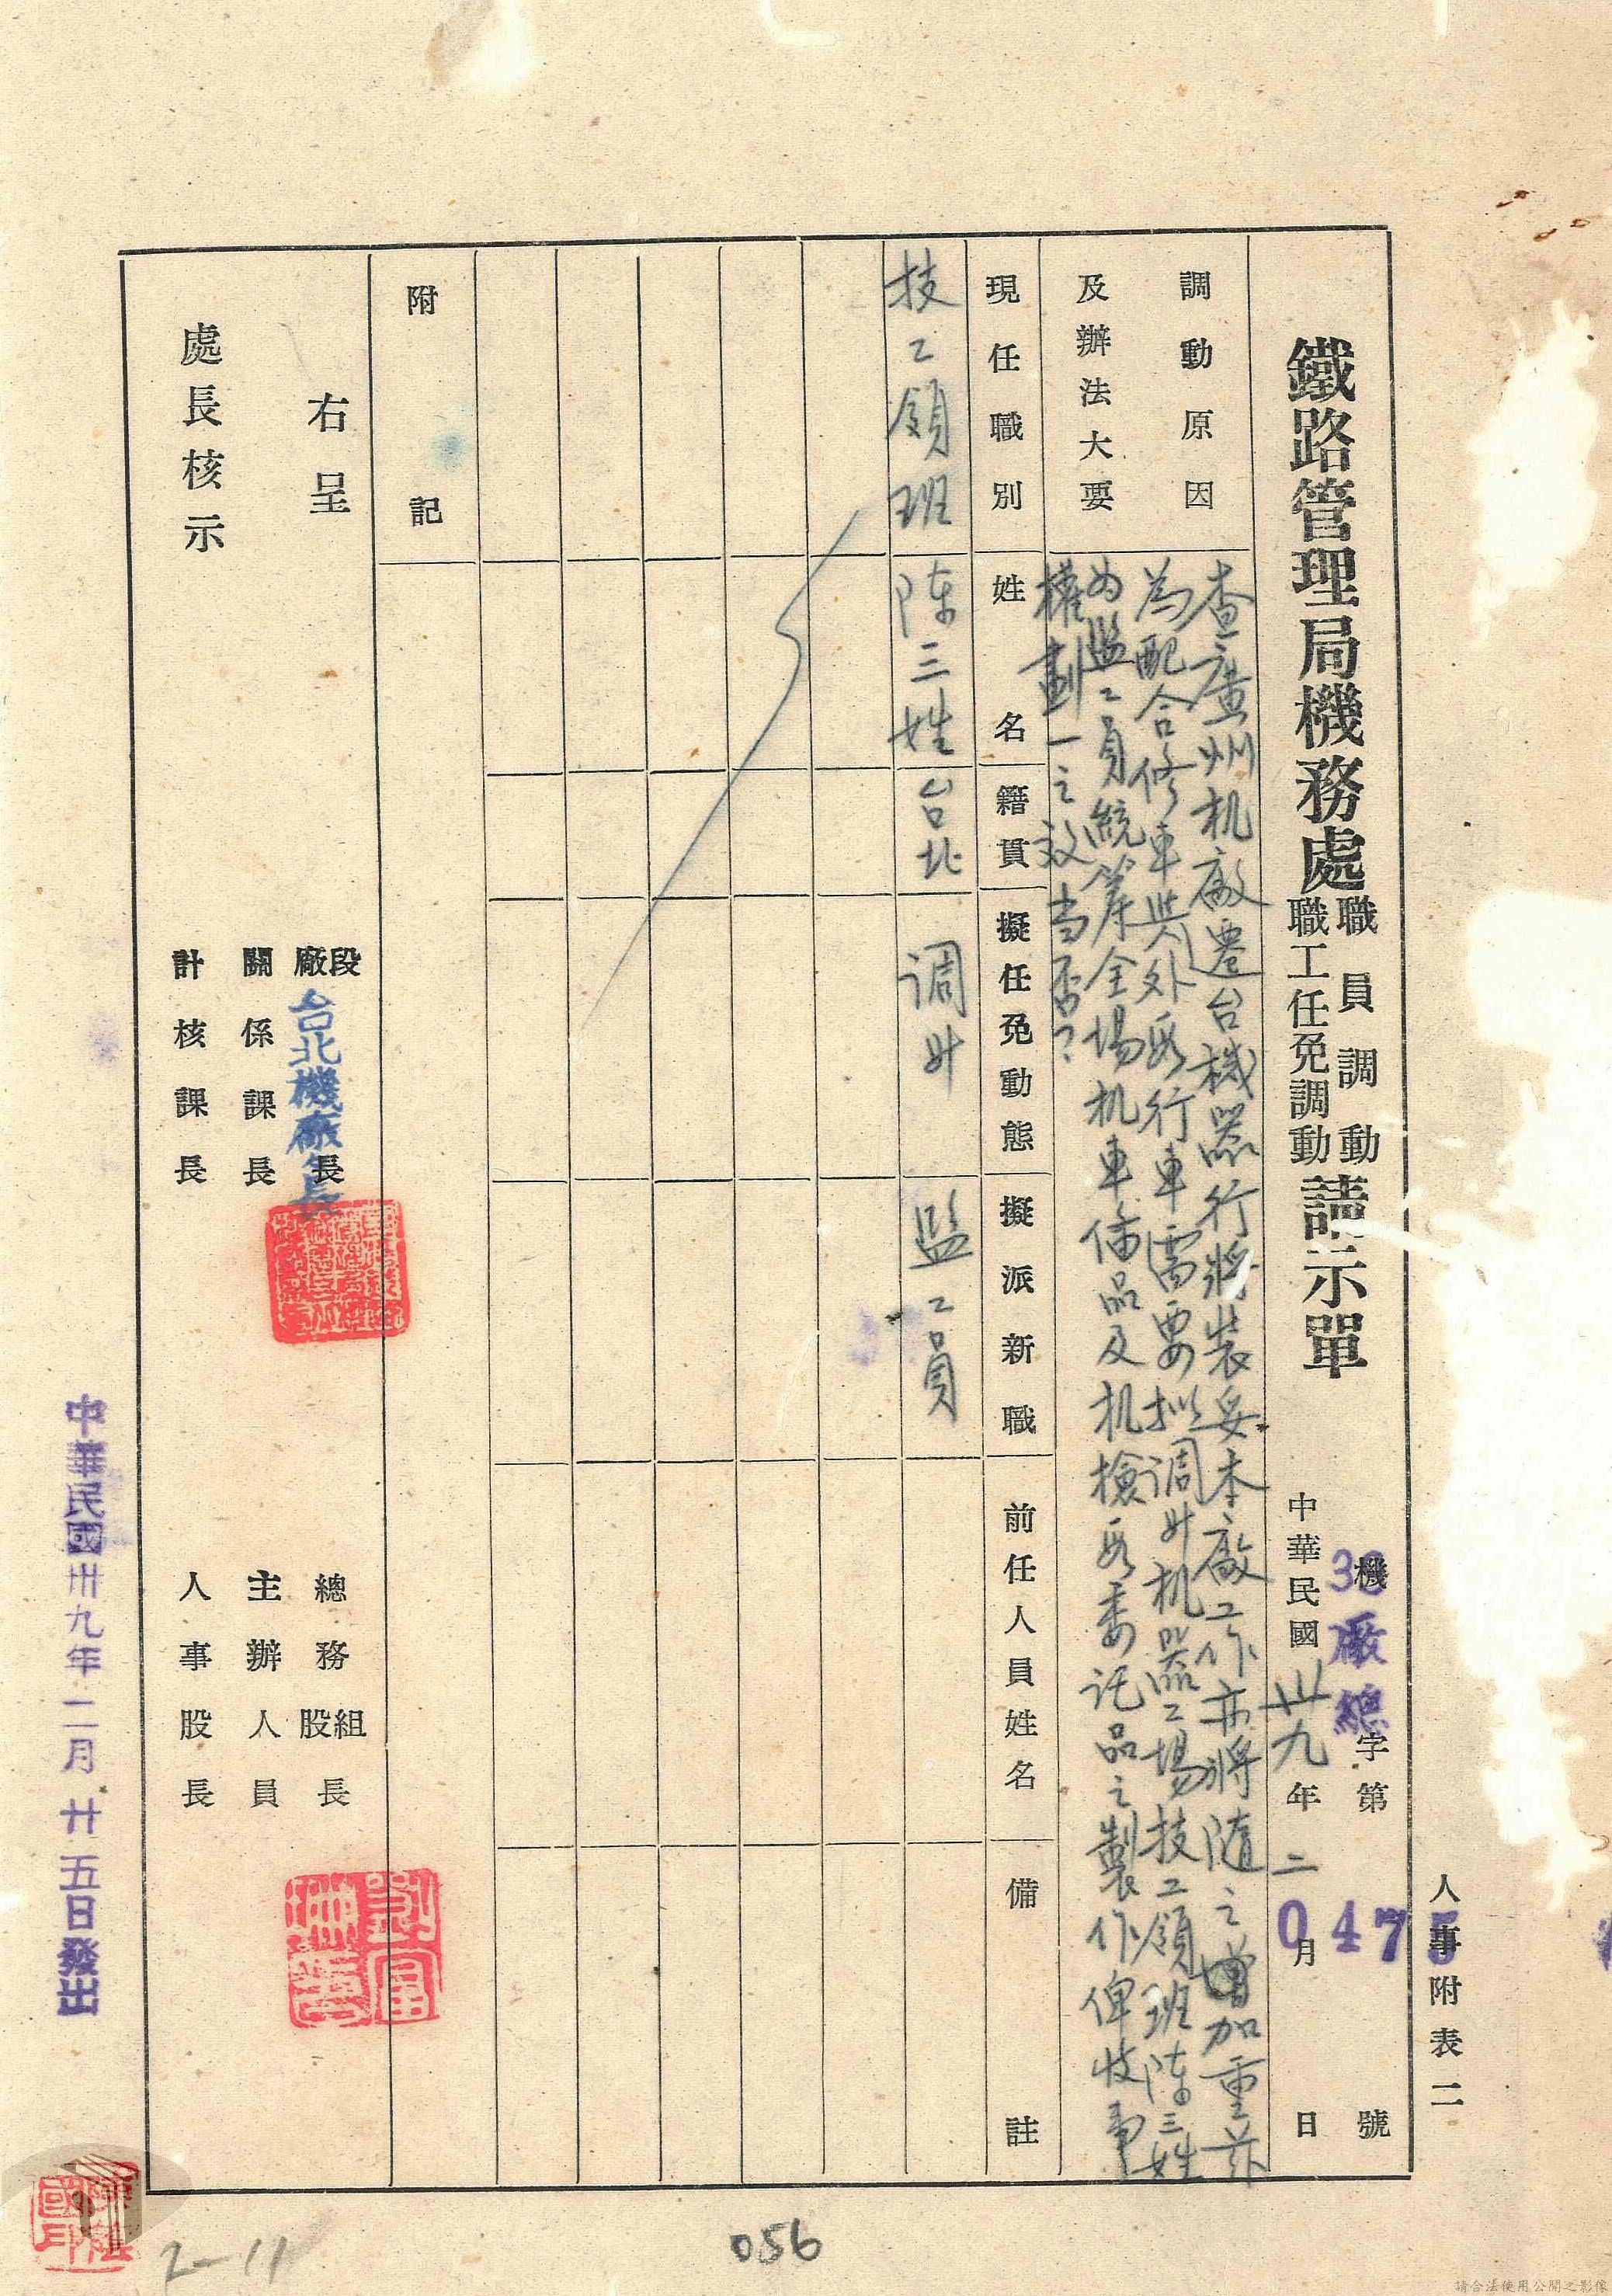 人事附表二
鐵路管理局機務處職員調動職工任免調動請示單
機廠總字第0475號
中華民國卅九年二月 日
調動原因
及辦法大要
查廣州机廠遷台機器行將裝妥本廠工作亦將隨之增加重茲
為配合修車與外段行車需要拟调升机器工場技工領班陳三姓
為監工員統籌全場机車俻品及机檢段委託品之製作俾收事
權劃一之效当否？
現任職別
姓名
籍貫
擬任免動態
擬派新職
前任人員姓名
備註
技工領班
陈三姓
台北
调升
監工員
附記
右呈
處長核示
段廠長
台北機廠廠長
關係課長
計核課長
總務組股長
主辦人員
人事股長
中華民國卅九年二月廿五日發出
2-11
056
請合法使用公開之影像